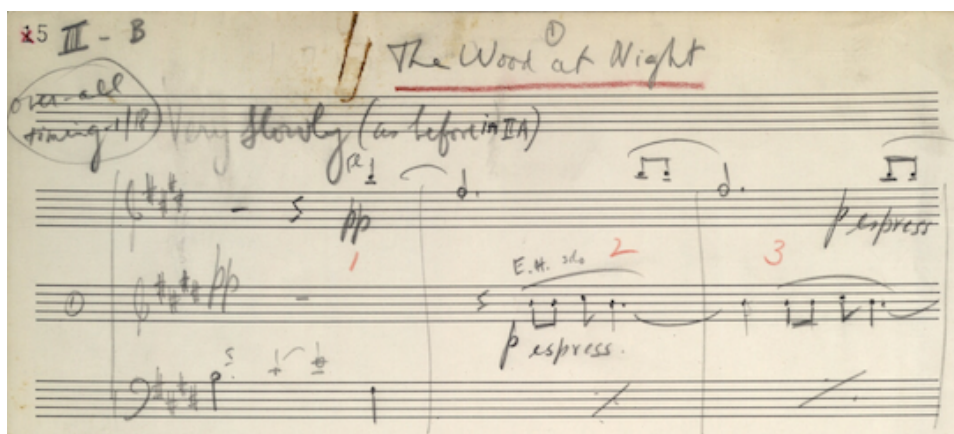 15 III - B
①
The Wood at Night
over-all
timing 1/18
Very Slowly (as before in II A)
fl
pp
p espress
1
2
3
E.H. solo
① pp
p espress.